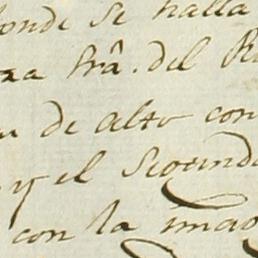 donde se halla
Srâ. del R
de alto con
y el Segund
con la imag